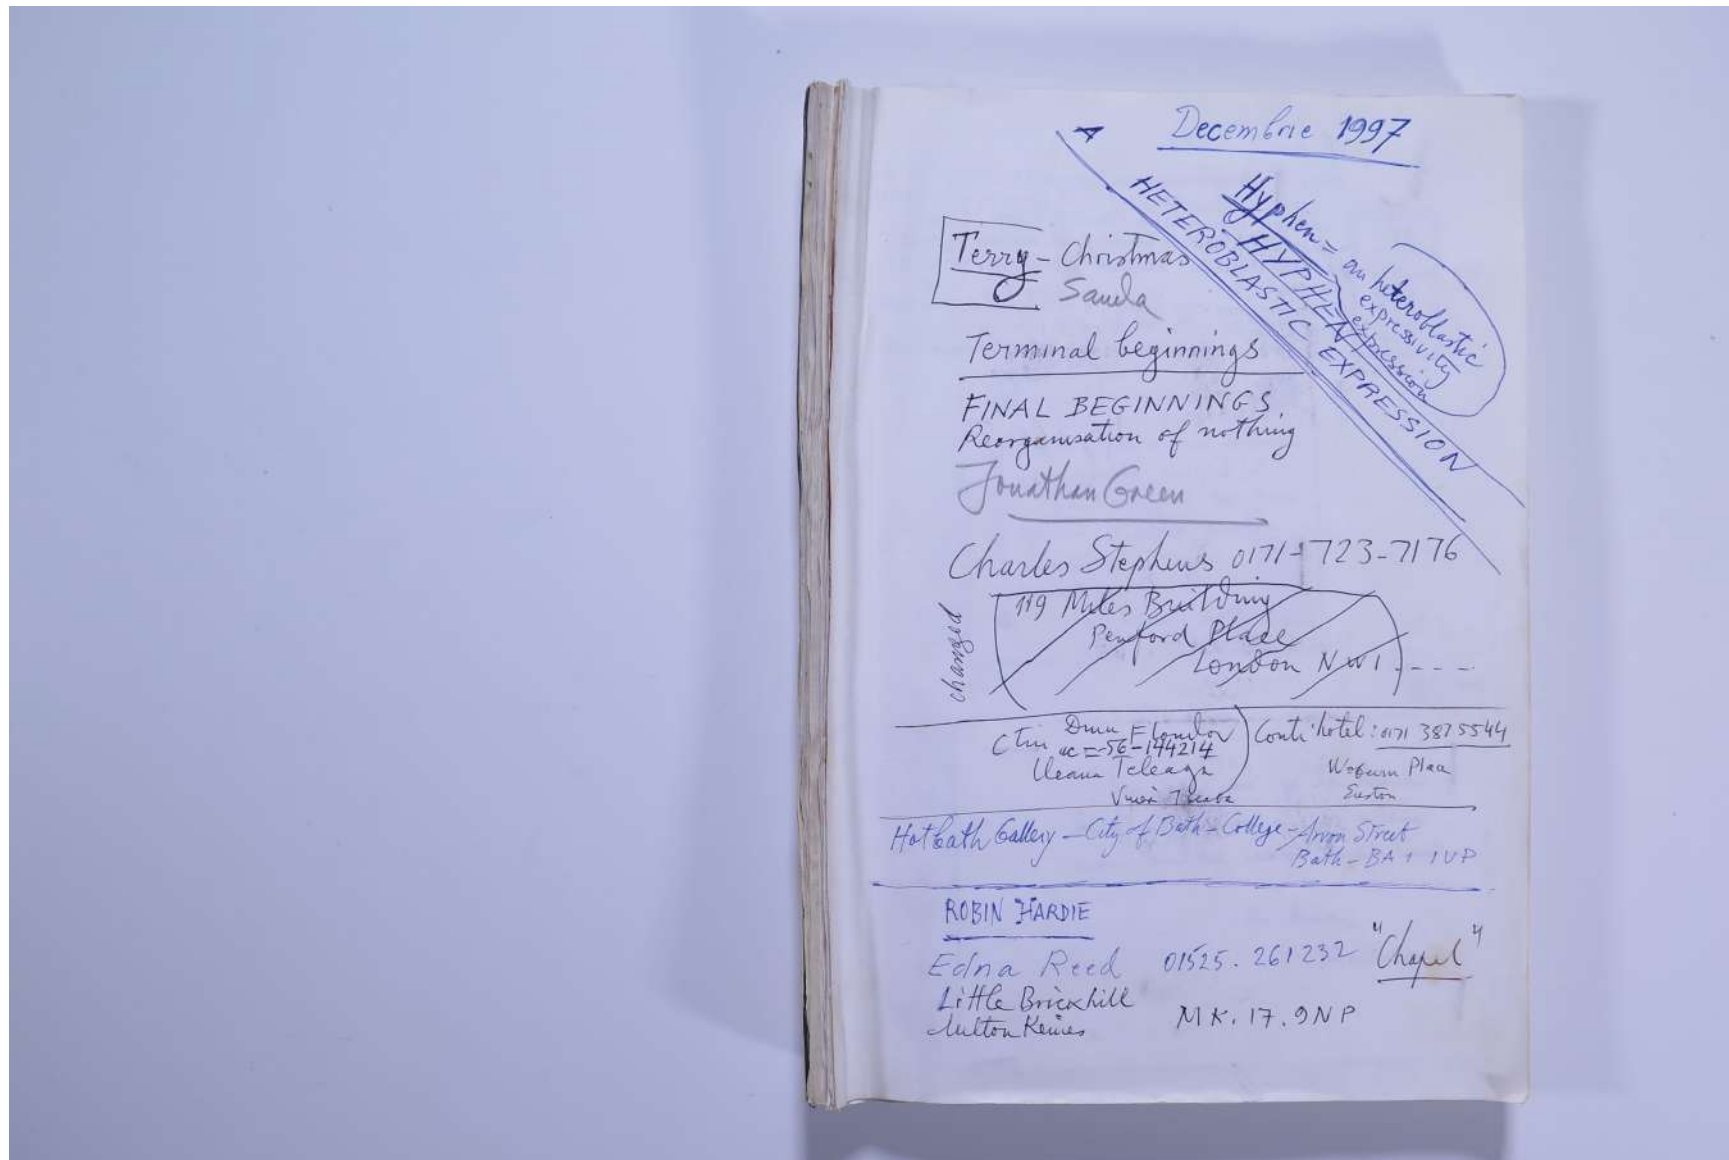 Decembrie 1997
Hyphen = an heteroblastic
expressivity
expression
HYPHEN
HETEROBLASTIC EXPRESSION
Terry - Christmas
Terminal beginnings
FINAL BEGINNINGS.
Reorganisation of nothing
Jonathan Green
Charles Stephens 0171-723-7176
changed
119 Miles Building
Penford Place
London NW1 ----
56-144214
Ileana Teleaga
Conti hotel: 0171 3875544
Woburn Place
Euston
Hotbath Gallery - City of Bath - College - Avon Street
Bath - BA1 1UP
ROBIN HARDIE
Edna Reed 01525. 261232 "Chapel"
Little Brickhill
Milton Keines MK. 17. 9NP